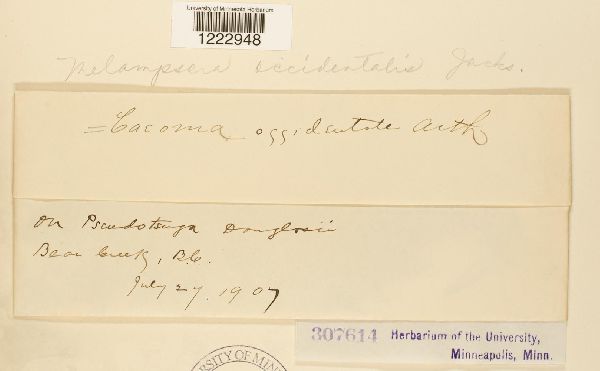 University of Minnesota Herbarium
1222948
Melampsora occidentalis Jacks.
= Caeoma occidentale Arth
on Pseudotsuga Douglasii
Bear Creek, B.C.
July 27, 1907
307614 Herbarium of the University,
Minneapolis, Minn.